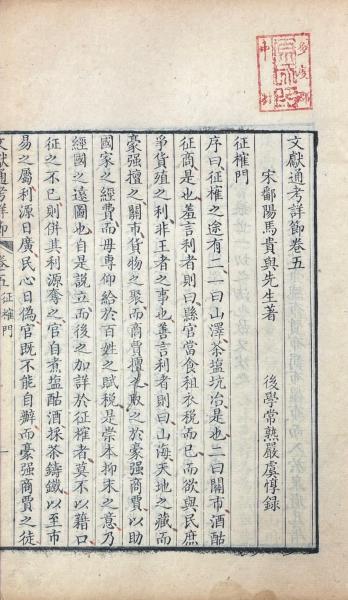 文獻通考詳節卷五
宋鄱陽馬貴與先生著
後學常熟嚴虞惇錄
征榷門
序曰征榷之途有二一曰山澤茶塩坑冶是也二曰關市酒酤
征商是也羞言利者則曰縣官當食租衣税而已而欲與民庶
爭貨殖之利非王者之事也善言利者則曰山海天地之藏而
豪强擅之關市貨物之聚而商賈擅之取之於豪强商賈以助
國家之經費而毋專仰給於百姓之賦税是崇本抑末之意乃
經國之遠圖也自是説立而後之加詳於征榷者莫不以藉口
征之不已則併其利源奪之官自煮塩酤酒採茶鑄鐵以至市
易之屬利源日廣民心日偽官既不能自辦而豪强商賈之徒
文獻通考詳節
卷五征榷門